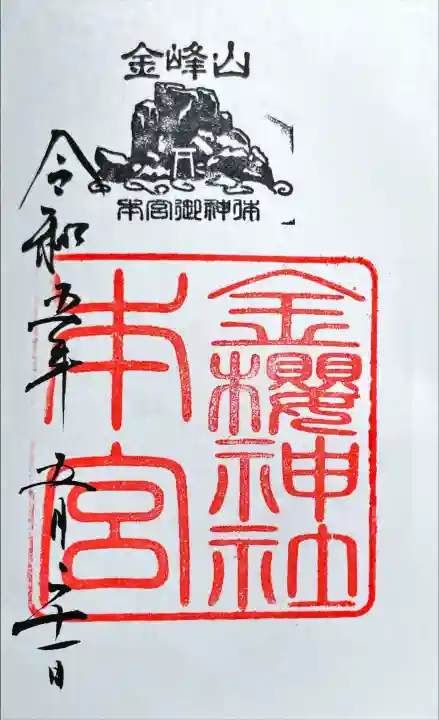 金峰山
本宮御神体
金櫻神社
本宮
令和五年五月二十一日